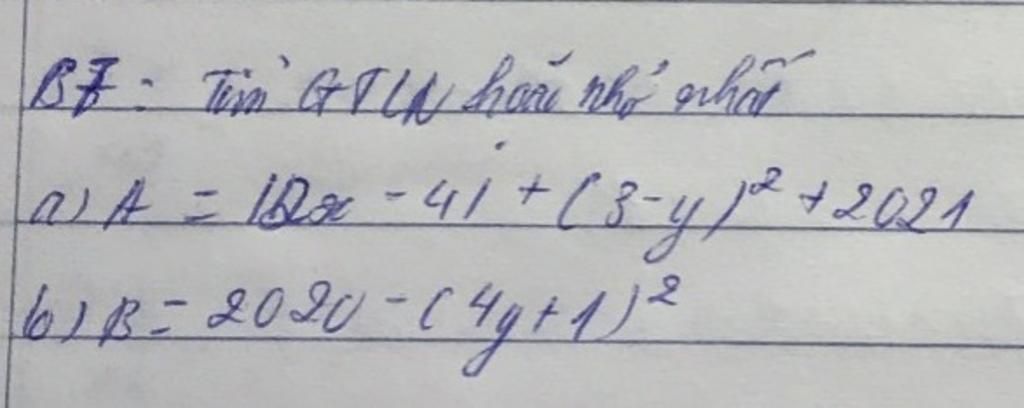 B7: Tìm GTLN hoặc nhỏ nhất
a) A = |2x - 4| + (3-y)² + 2021
b) B = 2020 - (4y+1)²